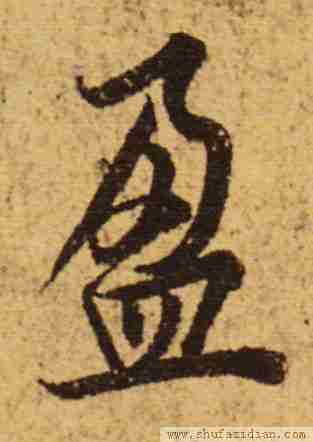 盈
www.shufazidian.com